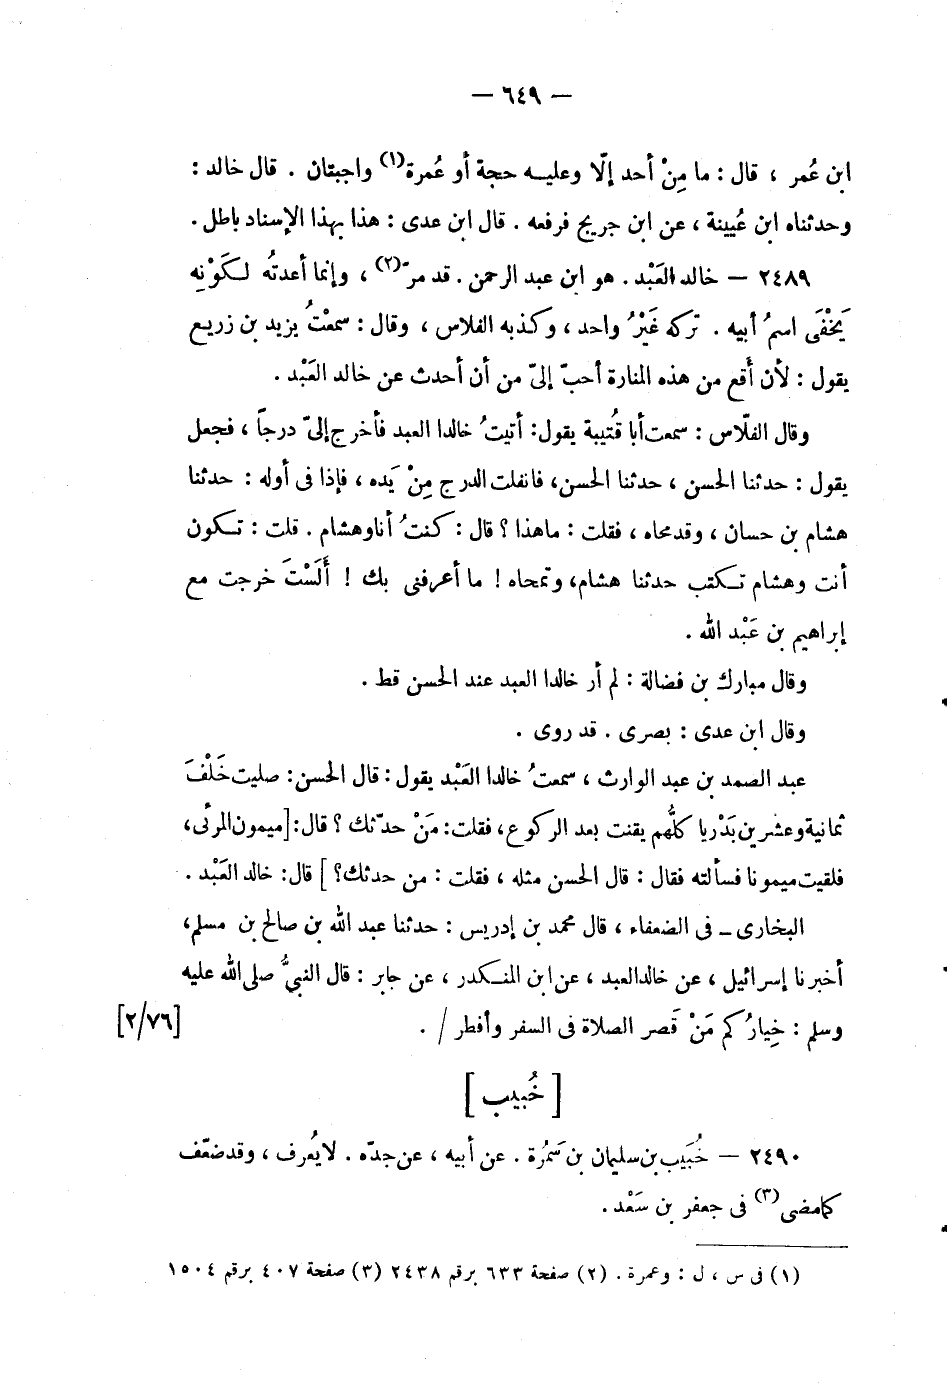 — ٦٤٩ —
ابن عُمر ، قال : ما مِنْ أحد إلّا وعليــه حجة أو عُمرة(١) واجبتان . قال خالد :
وحدثناه ابن عُيينة ، عن ابن جريج فرفعه . قال ابن عدى : هذا بهذا الإسناد باطل .
٢٤٨٩ – خالد العَبْد . هو ابن عبد الرحمن . قد مرّ(٢) ، وإنما أعدتُه لكَوْنِه
يَخْفَى اسمُ أبيه . تركه غَيْرُ واحد ، وكذبه الفلاس ، وقال : سمعْتُ يزيد بن زريع
يقول : لأن أَقع من هذه المنارة أحبّ إلىّ من أن أحدث عن خالد العَبْد .
وقال الفلّاس : سمعت أبا قُتيبة يقول : أتيتُ خالدا العبد فأخرج إلىّ درجاً ، فجعل
يقول : حدثنا الحسن ، حدثنا الحسن، فانفلت الدرج مِنْ يَده ، فإذا فى أوله : حدثنا
هشام بن حسان ، وقد محاه ، فقلت : ماهذا ؟ قال : كنتُ أنا وهشام . قلت : تكون
أنت وهشام تكتب حدثنا هشام، وتمحاه ! ما أعرفنى بك ! أَلَسْتَ خرجت مع
إبراهيم بن عَبْد الله .
وقال مبارك بن فضالة : لم أر خالدا العبد عند الحسن قط .
وقال ابن عدى : بصرى . قد روى .
عبد الصمد بن عبد الوارث ، سمعتُ خالدا العَبْد يقول : قال الحسن : صليت خَلْفَ
ثمانية وعشرين بَدْريا كلُّهم يقنت بعد الركوع، فقلت: مَنْ حدّثك ؟ قال: [ميمون المرئى،
فلقيت ميمونا فسألته فقال : قال الحسن مثله ، فقلت : من حدثك؟ ] قال: خالد العَبْد .
البخارى – فى الضعفاء ، قال محمد بن إدريس : حدثنا عبد الله بن صالح بن مسلم،
أخبرنا إسرائيل ، عن خالد العبد ، عن ابن المنكدر ، عن جابر : قال النبيُّ صلى الله عليه
وسلم : خِيارُكم مَنْ قَصر الصلاة فى السفر وأفطر / . [٢/٧٦]
[ خُبيب ]
٢٤٩٠ – خُبَيب بن سليمان بن سَمُرة . عن أبيه ، عن جدّه . لا يُعرف ، وقد ضعّف
كما مضى(٣) فى جعفر بن سَعْد .
(١) فى س ، ل : وعمرة . (٢) صفحة ٦٣٣ برقم ٢٤٣٨ (٣) صفحة ٤٠٧ برقم ١٥٠٤